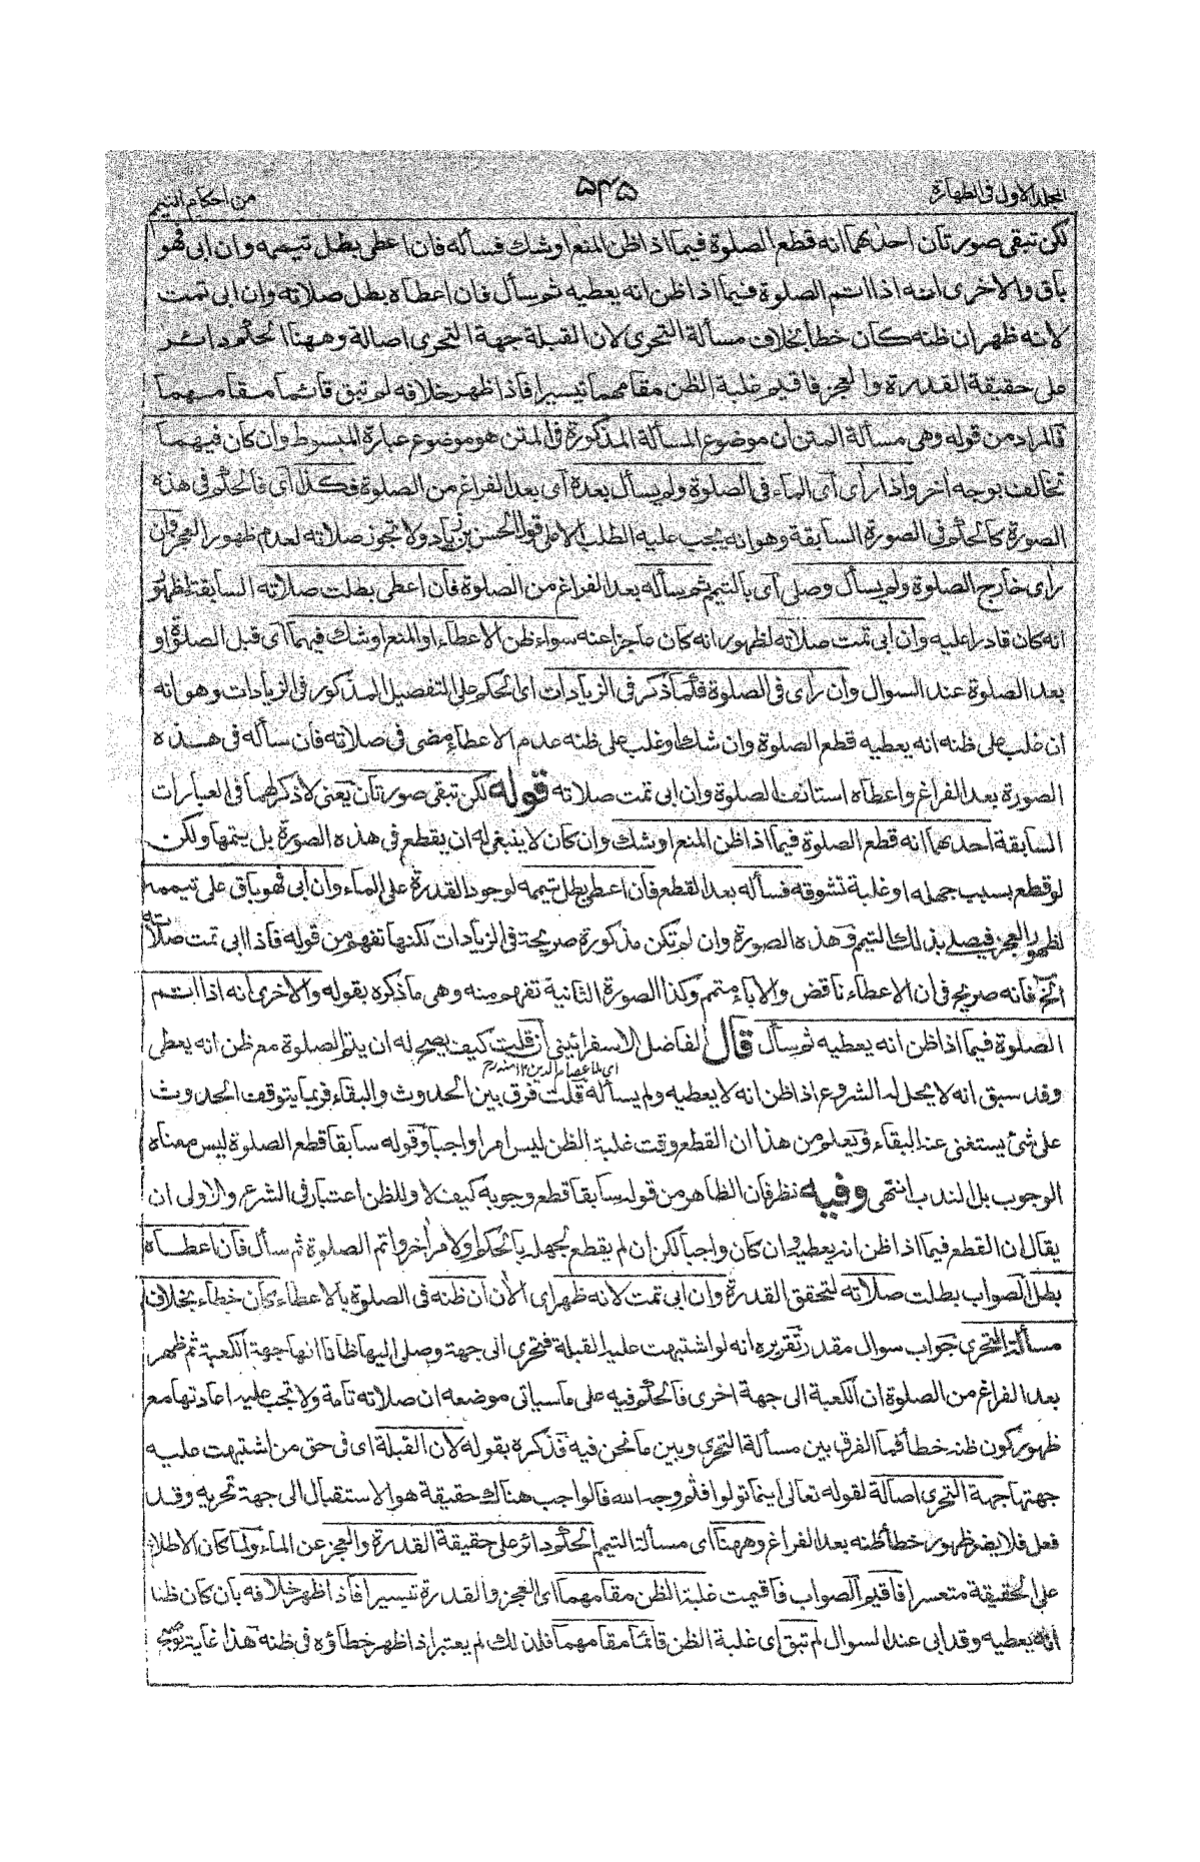 المجلد الاول فى الطهارة
۵۴۵
من احكام التيمم
لكن تبقى صورتان احدٰهما انه قطع الصلوة فيما اذا ظن المنع او شك فسأله فان اعطى بطل تيممه وان ابى فهو
باق والاخرى انه اذا اتم الصلوة فيما اذا ظن انه يعطيه ثم سأل فان اعطاه بطل صلاته وان ابى تمت
لانه ظهر ان ظنه كان خطأ بخلاف مسألة التحرى لان القبلة جهة التحرى اصالة وههنا الحكم دائر
على حقيقة القدرة والعجز فاقيم غلبة الظن مقامهما تيسيرا فاذا ظهر خلافه لم تبق قائما مقامهما
فالمراد من قوله وهى مسألة المتن ان موضوع المسألة المذكورة فى المتن هو موضوع عبارة المبسوط وان كان فيهما
تخالف بوجه اخر واذا رأى اى الماء فى الصلوة ولم يسأل بعده اى بعد الفراغ من الصلوة فكذا اى فالحكم فى هذه
الصورة كالحكم فى الصورة السابقة وهو انه يجب عليه الطلب الا على قول الحسن بن زياد ولا تجوز صلاته لعدم ظهور العجز وان
رأى خارج الصلوة ولم يسأل وصلى اى بالتيمم ثم سأله بعد الفراغ من الصلوة فان اعطى بطلت صلاته السابقة لظهور
انه كان قادرا عليه وان ابى تمت صلاته لظهور انه كان عاجزا عنه سواء ظن الاعطاء او المنع او شك فيهما اى قبل الصلوة او
بعد الصلوة عند السوال وان رأى فى الصلوة فكما ذكر فى الزيادات اى الحكم على التفصيل المذكور فى الزيادات وهو انه
ان غلب على ظنه انه يعطيه قطع الصلوة وان شك او غلب على ظنه عدم الاعطاء مضى فى صلاته فان سأله فى هذه
الصورة بعد الفراغ واعطاه استانف الصلوة وان ابى تمت صلاته قوله لكن تبقى صورتان يعنى لا ذكر لهما فى العبارات
السابقة احدٰهما انه قطع الصلوة فيما اذا ظن المنع او شك وان كان لا ينبغى له ان يقطع فى هذه الصورة بل يتمها ولكن
لو قطع بسبب جهله او غلبة تشوقه فسأله بعد القطع فان اعطى بطل تيممه لوجود القدرة على الماء وان ابى فهو باق على تيممه
لظهور العجز فيصلى بذلك التيمم وهذه الصورة وان لم تكن مذكورة صريحة فى الزيادات لكنها تفهم من قوله فاذا ابى تمت صلاته
الخ فانه صريح فى ان الاعطاء ناقض والاباء متمم وكذا الصورة الثانية تفهم منه وهى ما ذكره بقوله والاخرى انه اذا اتم
الصلوة فيما اذا ظن انه يعطيه ثم سأل قال الفاضل الاسفرائينى ان قلت كيف يصح له ان يتم الصلوة مع ظن انه يعطى
اى ملا عصام الدين ١٢ منه رح
وقد سبق انه لا يحل له الشروع اذا ظن انه لا يعطيه ولم يسأله قلت فرق بين الحدوث والبقاء فربما يتوقف الحدوث
على شئ يستغنى عنه البقاء ويعلم من هذا ان القطع وقت غلبة الظن ليس امرا واجبا وقوله سابقا قطع الصلوة ليس معناه
الوجوب بل الندب انتهى وفيه نظر فان الظاهر من قوله سابقا قطع وجوبه كيف لا وللظن اعتبار فى الشرع والاولى ان
يقال ان القطع فيما اذا ظن انه يعطيه وان كان واجبا لكن ان لم يقطع لجهله بالحكم او لامر اخر واتم الصلوة ثم سأل فان اعطاه
بطل الصواب بطلت صلاته لتحقق القدرة وان ابى تمت لانه ظهر اى الأن ان ظنه فى الصلوة بالاعطاء كان خطاء بخلاف
مسألة التحرى جواب سوال مقدر تقريره انه لو اشتبهت عليه القبلة فتحرى الى جهة وصلى اليها ظانا انها جهة الكعبة ثم ظهر
بعد الفراغ من الصلوة ان الكعبة الى جهة اخرى فالحكم فيه على ما سياتى موضعه ان صلاته تامة ولا تجب عليه اعادتها مع
ظهور كون ظنه خطأ فما الفرق بين مسألة التحرى وبين ما نحن فيه فذكره بقوله لان القبلة اى فى حق من اشتبهت عليه
جهتها جهة التحرى اصالة لقوله تعالى اينما تولوا فثم وجه الله فالواجب هناك حقيقة هو الاستقبال الى جهة تحريه وقد
فعل فلا يضر ظهور خطأ ظنه بعد الفراغ وههنا اى مسألة التيمم الحكم دائر على حقيقة القدرة والعجز عن الماء ولما كان الاطلاع
على الحقيقة متعسرا فاقيم الصواب فاقيمت غلبة الظن مقامهما اى العجز والقدرة تيسيرا فاذا ظهر خلافه بان كان ظنا
انه يعطيه وقد ابى عند السوال لم تبق اى غلبة الظن قائما مقامهما فلذلك لم يعتبر اذا ظهر خطاؤه فى ظنه هذا غاية توضيح